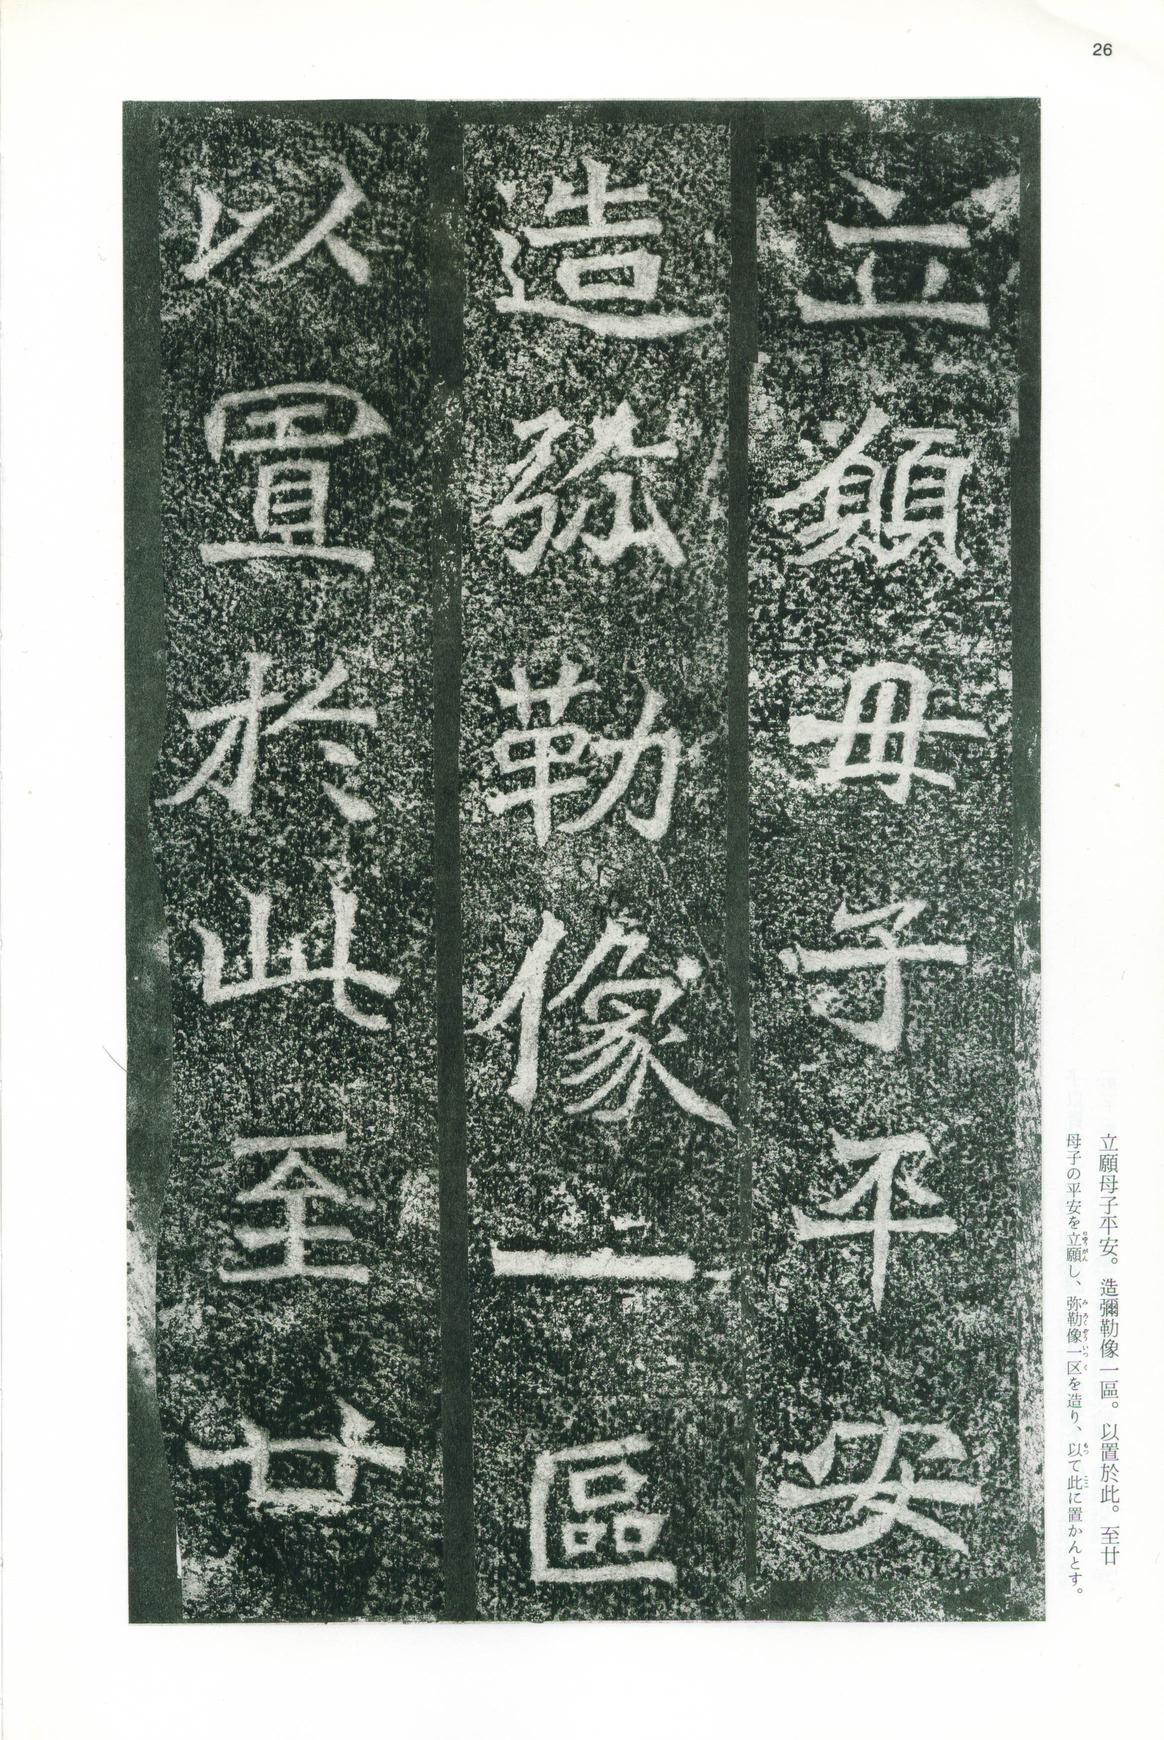 26
立願母子平安
造弥勒像一區
以置於此至廿
立願母子平安。造彌勒像一區。以置於此。至廿
母子の平安を立願し、弥勒像一区を造り、以て此に置かんとす。